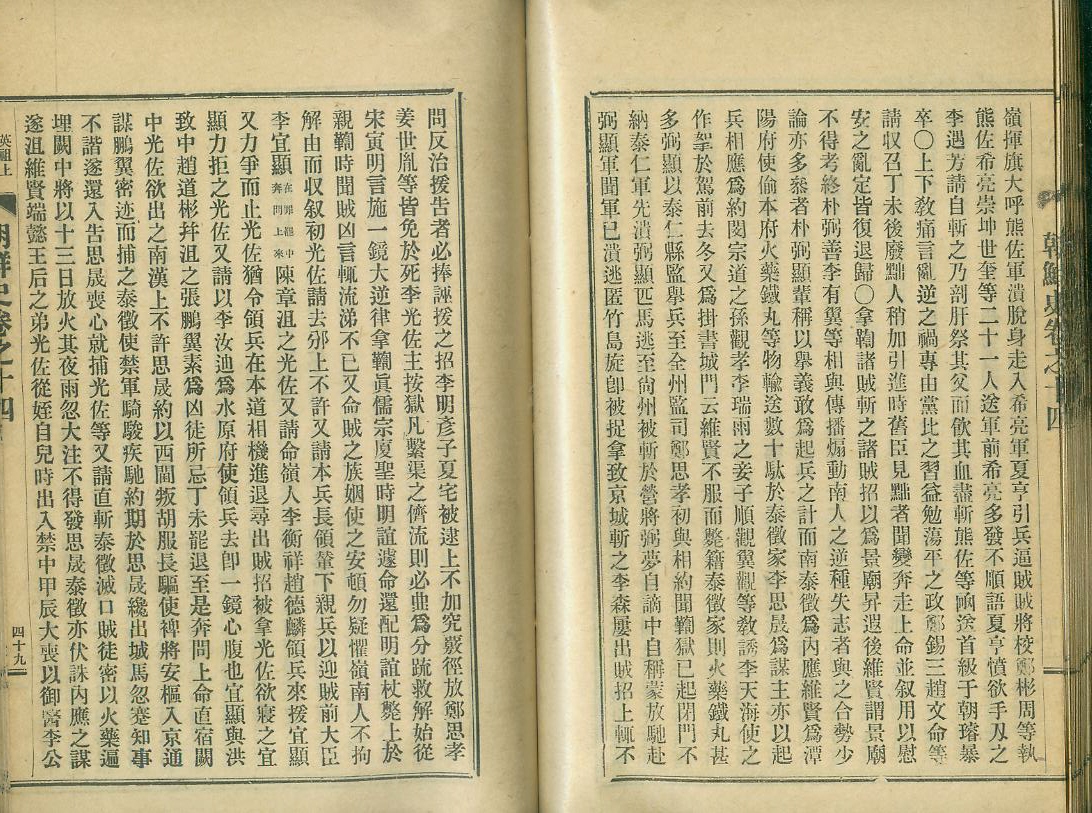 朝鮮史卷之十四
嶺揮旗大呼熊佐軍潰脫身走入希亮軍夏亨引兵逼賊賊將校鄭彬周等執
熊佐希亮崇坤世奎等二十一人送軍前希亮多發不順語夏亨憤欲手刃之
李遇芳請自斬之乃剖肝祭其父而飮其血盡斬熊佐等凾首級于朝瑃暴
卒〇上下敎痛言亂逆之禍專由黨比之習益勉蕩平之政鄭錫三趙文命等
請収召丁未後廢黜人稍加引進時舊臣見黜者聞變奔走上命並叙用以慰
安之亂定皆復退歸〇拿鞫諸賊斬之諸賊招以爲景廟昇遐後維賢謂景廟
不得考終朴弼善李有翼等相與傳播煽動南人之逆種失志者與之合勢少
論亦多叅者朴弼顯輩稱以擧義敢爲起兵之計而南泰徵爲內應維賢爲潭
陽府使偷本府火藥鐵丸等物輸送數十駄於泰徵家李思晟爲謀主亦以起
兵相應爲約閔宗道之孫觀孝李瑞雨之妾子順觀翼觀等敎誘李天海使之
作挐於駕前去冬又爲掛書城門云維賢不服而斃籍泰徵家則火藥鐵丸甚
多弼顯以泰仁縣監擧兵至全州監司鄭思孝初與相約聞鞫獄已起閉門不
納泰仁軍先潰弼顯匹馬逃至尙州被斬於營將弼夢自謫中自稱蒙放馳赴
弼顯軍聞軍已潰逃匿竹島旋卽被捉拿致京城斬之李森屢出賊招上輒不
問反治援告者必捧誣援之招李明彥子夏宅被逮上不加究覈徑放鄭思孝
姜世胤等皆免於死李光佐主按獄凡繫渠之儕流則必曲爲分疏救解始從
宋寅明言施一鏡大逆律拿鞫眞儒宗廈聖時明誼遽命還配明誼杖斃上於
親鞫時聞賊凶言輒流涕不已又命賊之族姻使之安頓勿疑懼嶺南人不拘
解由而収叙初光佐請去邠上不許又請本兵長領輦下親兵以迎賊前大臣
李宜顯在罪籍中奔問上來陳章沮之光佐又請命嶺人李衡祥趙德麟領兵來援宜顯
又力爭而止光佐猶令領兵在本道相機進退尋出賊招被拿光佐欲寢之宜
顯力拒之光佐又請以李汝迪爲水原府使領兵去卽一鏡心腹也宜顯與洪
致中趙道彬幷沮之張鵬翼素爲凶徒所忌丁未罷退至是奔問上命直宿闕
中光佐欲出之南漢上不許思晟約以西閫叛胡服長驅使裨將安樞入京通
謀鵬翼密迹而捕之泰徵使禁軍騎駿疾馳約期於思晟纔出城馬忽蹇知事
不諧遂還入告思晟喪心就捕光佐等又請直斬泰徵滅口賊徒密以火藥遍
埋闕中將以十三日放火其夜雨忽大注不得發思晟泰徵亦伏誅內應之謀
遂沮維賢端懿王后之弟光佐從姪自兒時出入禁中甲辰大喪以御醫李公
英祖上
朝鮮史卷之十四
四十九